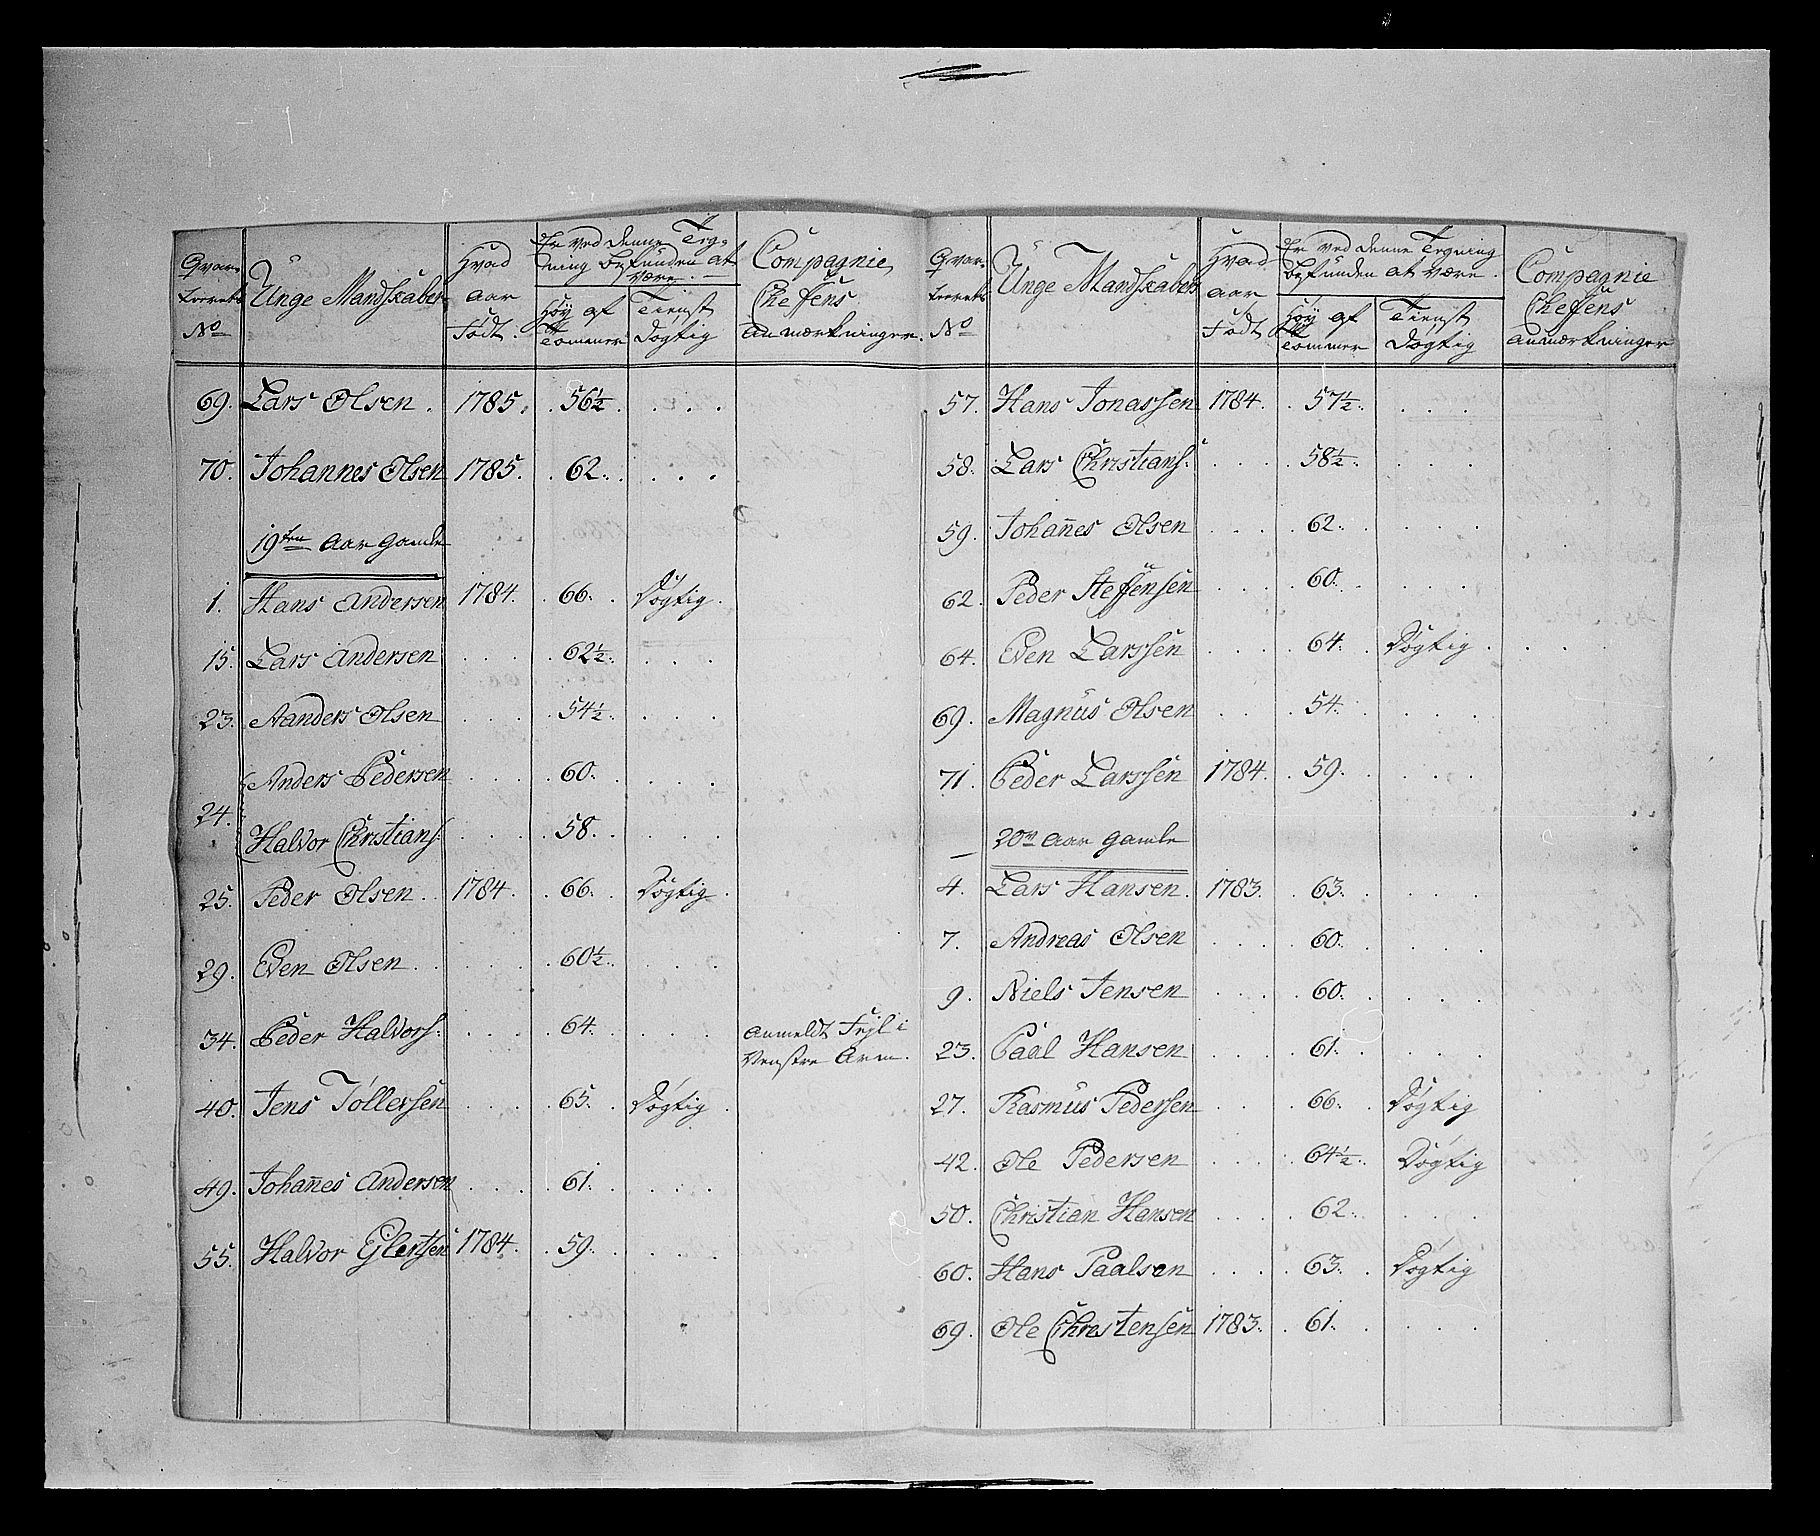 Qvar-
teerets
No
Unge Mandskaber
Hvad
aar
Født.
Er ved denne Teg-
ning befunden at
være.
Høy af
Tommer
Tienst
Dygtig
Compagnie
Cheffens
Anmærkninger.
69. Lars Olsen. 1785. 56½ . . .
70. Johannes Olsen 1785. 62. . . .
19ten Aar gamle
1. Hans Andersen 1784. 66. Dögtig.
15. Lars Andersen . . . 62½. . . .
23. Aanders Olsen . . . 54½. . . .
24. Anders Pedersen . . . 60. . . .
Halvor Christians: . . . 58. . . .
25. Peder Olsen. 1784. 66. Dögtig.
29. Even Olsen. . . . 60½. . . .
34. Peder Halvors: . . . 64. . . . Anmeldt Fejl i
Venstre Arm.
40. Jens Töllersen . . . 65. Dögtig.
49. Johan̄es Andersen . . . 61. . . .
55. Halvor Ejlertsen 1784. 59. . . .
Qvar-
teerets
No
Unge Mandskaber
Hvad
aar
Født
Er ved denne Tegning
befunden at være.
Høy af
Tommer
Tienst
Dygtig
Compagnie
Cheffens
Anmærkninger
57. Hans Jonassen 1784. 57½. . . .
58. Lars Christians: . . . 58½. . . .
59. Johan̄es Olsen . . . 62. . . .
62. Peder Steffensen . . . 60. . . .
64. Even Larssen . . . 64. Dögtig. . . .
69. Magnus Olsen . . . 54. . . .
71. Peder Larssen 1784. 59. . . .
— 20ve Aar gamle
4. Lars Hansen. 1783. 63. . . .
7. Andreas Olsen . . . 60. . . .
9. Niels Jensen . . . 60. . . .
23. Paal Hansen . . . 61. . . .
27. Rasmus Pedersen . . . 66. Dögtig
42. Ole Pedersen . . . 64½. Dögtig
50. Christian Hansen . . . 62. . . .
60. Hans Paalsen . . . 63. Dögtig
69. Ole Christensen 1783. 61. . . .